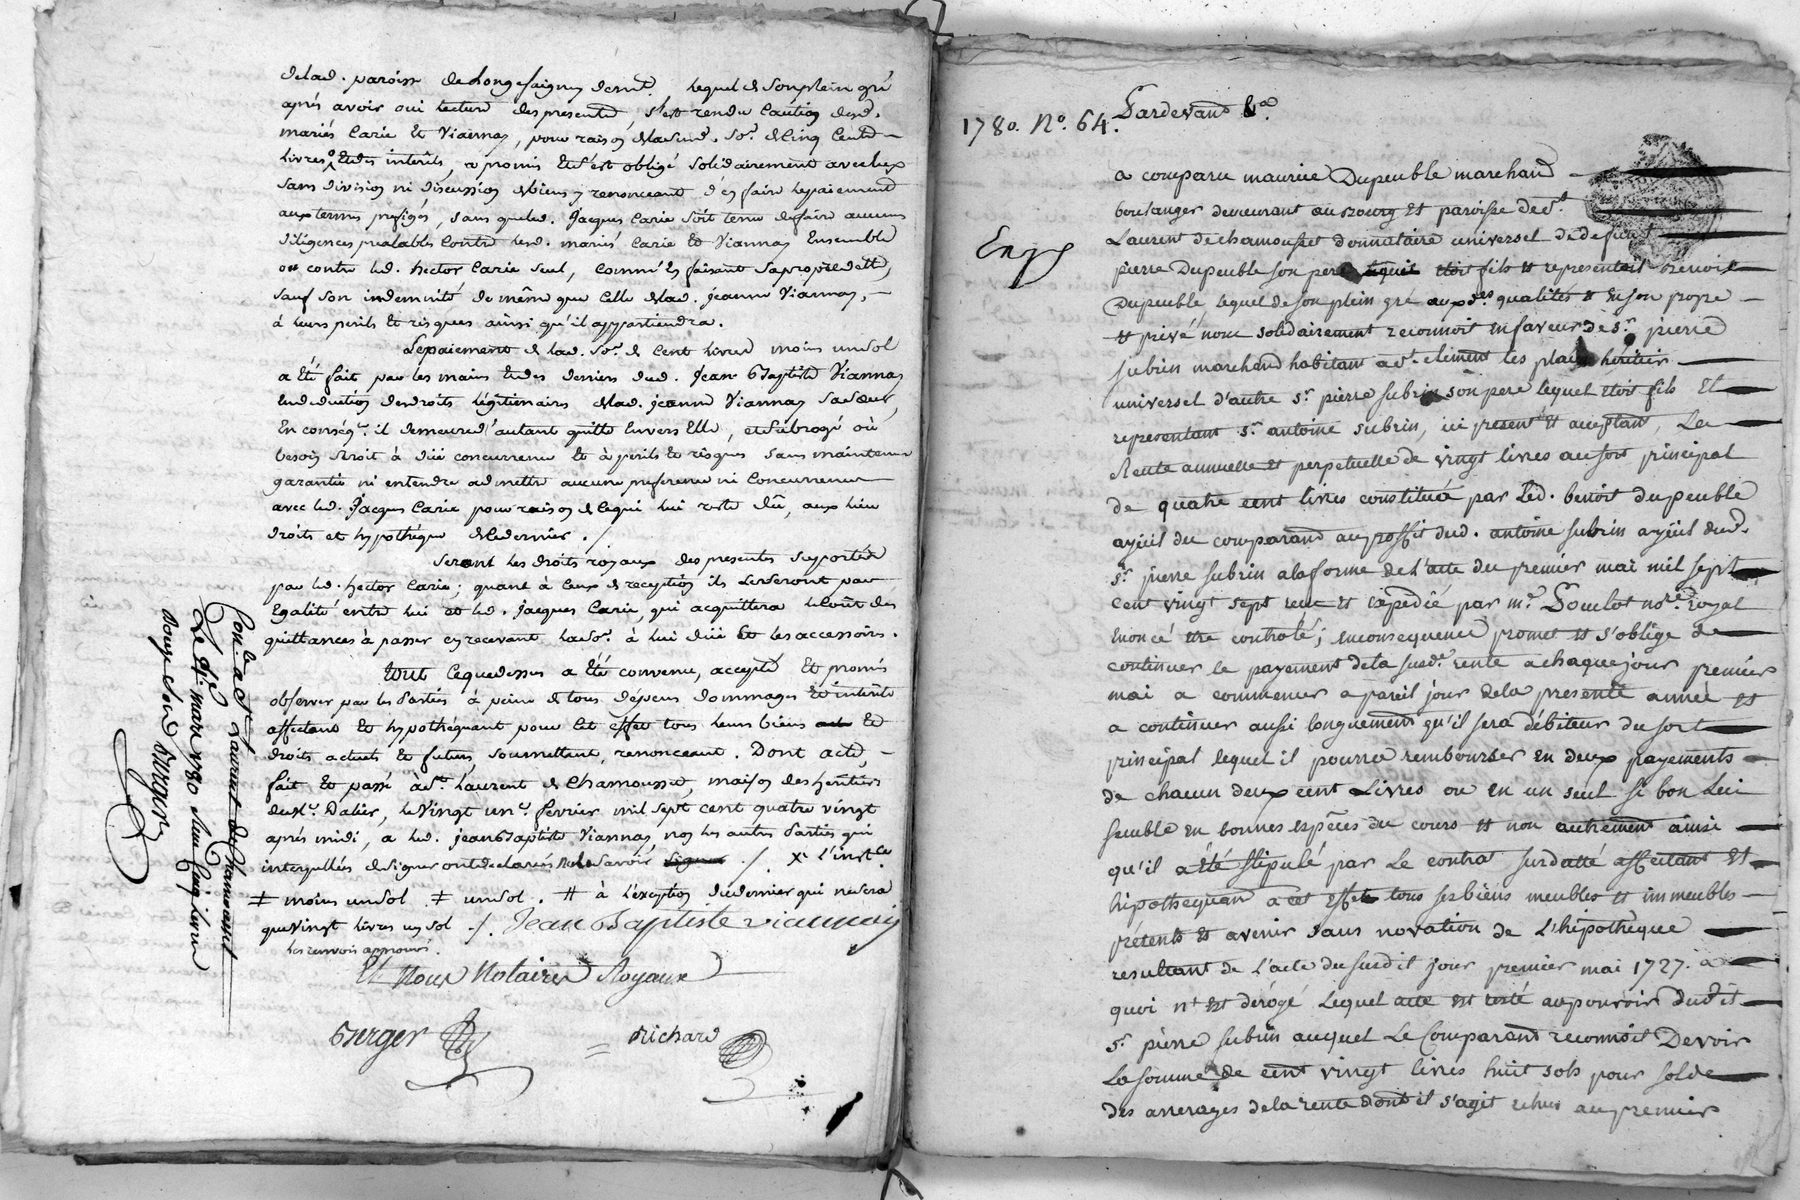 delad. paroisse de Longessaigne demt. Lequel de son plein gré
après avoir oui lecture des presentes, s'est rendu caution desd.
mariés Carie et Viannay, pour raison de lasusd. so.e de Cinq Cents
Livres et des interêts, a promis et s'est obligé solidairement avec eux
sans division ni discussion de biens y renonceant d'en faire le paiement
aux termes prefigés, sans que led. Jacques Carie soit tenu de faire aucunes
diligences prealables contre lesd. mariés Carie et Viannay Ensemble
ou contre led. hector Carie seul, comm'en faisant sa propre dette,
sauf son indemnité de même que celle de lad. jeanne Viannay,
à leurs perils et risques ainsi qu'il appartiendra.
Le paiement de lad. so.e de Cent livres moins un sol
a été fait par les mains et des deniers dud. Jean Baptiste Viannay
en deduction des droits légitimaires de lad. jeanne Viannay sa sœur,
En conséq.e il demeure d'autant quitte envers Elle, et subrogé où
besoin seroit à düe concurrence et à perils et risques sans maintenue
garantie ni entendre admettre aucune preference ni Concurrence
avec led. Jacques Carie pour raison de ce qui lui reste dû, aux lieu
droits et hypothéque de ce dernier. /
Seront les droits royaux des presentes supportés
par led. hector Carie; quant à ceux de reception ils le seront par
Egalité entre lui et led. Jacques Carie, qui acquittera le coût des
quittances à passer en recevant lad. so.e à lui düe et les accessoirs.
Tout ce que dessus a été convenu, accepté et promis
observer par les Parties à peine de tous dépens dommages et interêts
affectant et hypothéquant pour cet effet tous leurs biens et
droits actuels et futurs, soumettent, renonceant. Dont acte,
fait et passé à St. Laurent de Chamousset, maison des heritiers
du Sr. Dalier, le Vingt un.e fevrier mil sept cent quatre vingt
après midi, a led. jean Baptiste Viannay signé non les autres Parties qui
interpellées de signer ont declaré ne le savoir ./. X l'inst.ce
≠ moins un sol ≠ un sol. # à l'exception du dernier qui ne sera
que vingt livres un sol ./. Jean Baptiste viannay
les renvois approuvés
Et Nous Notaires Royaux
Berger Richard
Con.lé a St. Laurent de Chamousset
Le 4 mars 1780 Reçu Cinq livres
Douze sols Berger
1780. No. 64.
Pardevant &a.
Exp
a comparu maurice Dupeuble marchand
boulanger demeurant au Bourg et paroisse de St.
Laurent de chamousset donnataire universel de defunt
pierre Dupeuble son pere lequel etoit fils et representoit Benoit
Dupeuble lequel de son plein gré aux d.es qualités et en son propre
et privé nom solidairement reconnoit en faveur de Sr. pierre
Subrin marchand habitant a St. clément les places héritier
universel d'autre Sr. pierre Subrin son pere lequel etoit fils et
representant Sr. antoine Subrin, ici present et aceptant, La
Rente annuelle et perpetuelle de vingt livres au sort principal
de quatre cent livres constituée par Led. benoit dupeuble
ayeül du comparand au proffit dud. antoine Subrin ayeül dud.
Sr. pierre Subrin a la forme de L'acte du premier mai mil sept
cent vingt sept recu et expedié par me. Poulot nore. royal
enoncé etre controlé; en consequence promet et s'oblige de
continuer le payement de la susd.e rente a chaque jour premier
mai a commencer a pareil jour de la presente année et
a continuer aussi longuement qu'il sera débiteur du sort
principal lequel il pourra rembourser en deux payements
de chacun deux cent Livres ou en un seul si bon Lui
semble en bonnes espèces du cours et non autrement ainsi
qu'il a été stipulé par Le contrat sus datté affectant et
hipothequant a cet effet tous ses biens meubles et immeubles
présents et avenir sans novation de L'hipothèque
resultant de L'acte du susdit jour premier mai 1727. a
quoi n'est dérogé Lequel acte est resté au pouvoir dudit
Sr. pierre Subrin auquel Le Comparand reconnoit Devoir
La somme de cent vingt livres huit sols pour solde
des arrerages de la rente dont il s'agit echus au premier